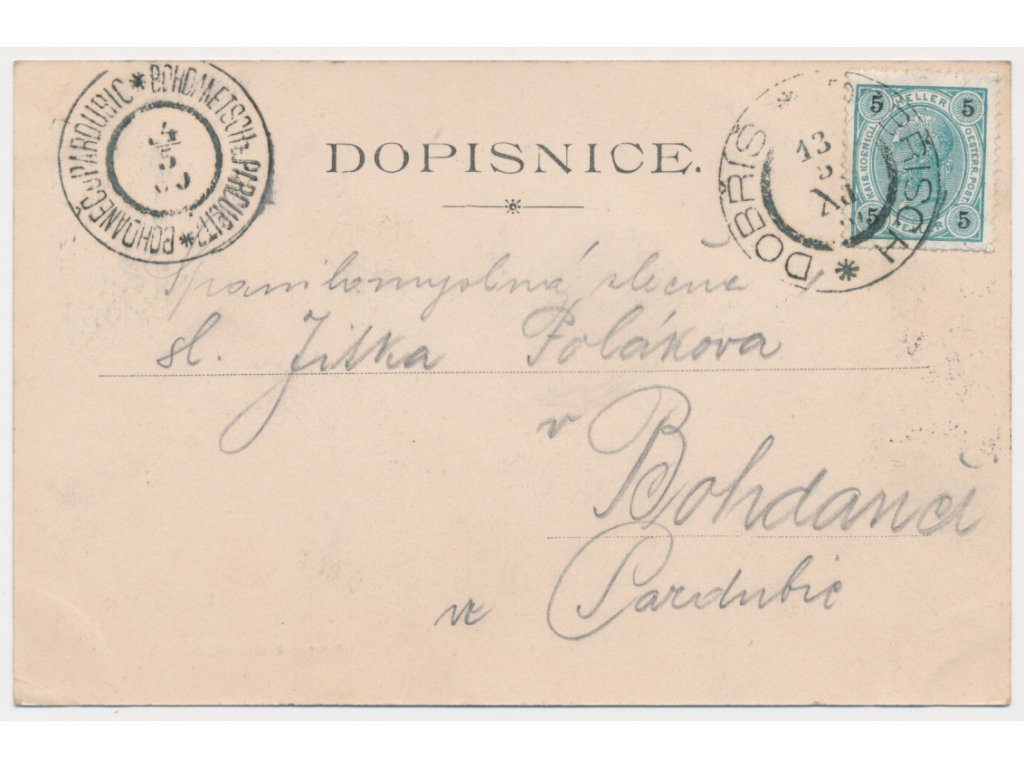 BOHDANEČ-PARDUBIC * BOHDANETSCH-PARDUBITZ *
4
5
DOPISNICE.
DOBŘÍŠ *
13
5
5 HELLER 5
KAIS. KOENIGL. OESTERR. POST.
5 5
slečně
sl. Jitka Polákova
v
Bohdanči
Pardubic